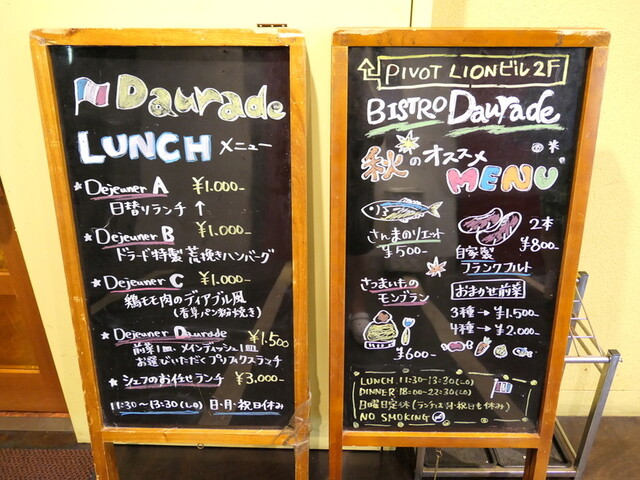 Daurade
LUNCH メニュー
★ Dejeuner A ¥1.000-
日替りランチ ↑
★ Dejeuner B ¥1.000-
ドラード特製 荒挽きハンバーグ
★ Dejeuner C ¥1.000-
鶏モモ肉のディアブル風
(香草パン粉焼き)
★ Dejeuner Daurade ¥1.500
前菜1皿、メインディッシュ1皿
お選びいただくプリフィクスランチ
★ シェフのお任せランチ ¥3.000-
11:30～13:30(L.O) 日・月・祝日休み
PIVOT LIONビル2F
BISTRO Daurade
秋のオススメ
MENU
さんまのリエット
¥500-
2本
¥800-
自家製
フランクフルト
さつまいもの
モンブラン
¥600-
おまかせ前菜
3種→¥1.500
4種→¥2.000
LUNCH 11:30-13:30(L.O)
DINNER 18:00-22:30(L.O)
日曜日定休(ランチは月・祝日も休み)
NO SMOKING